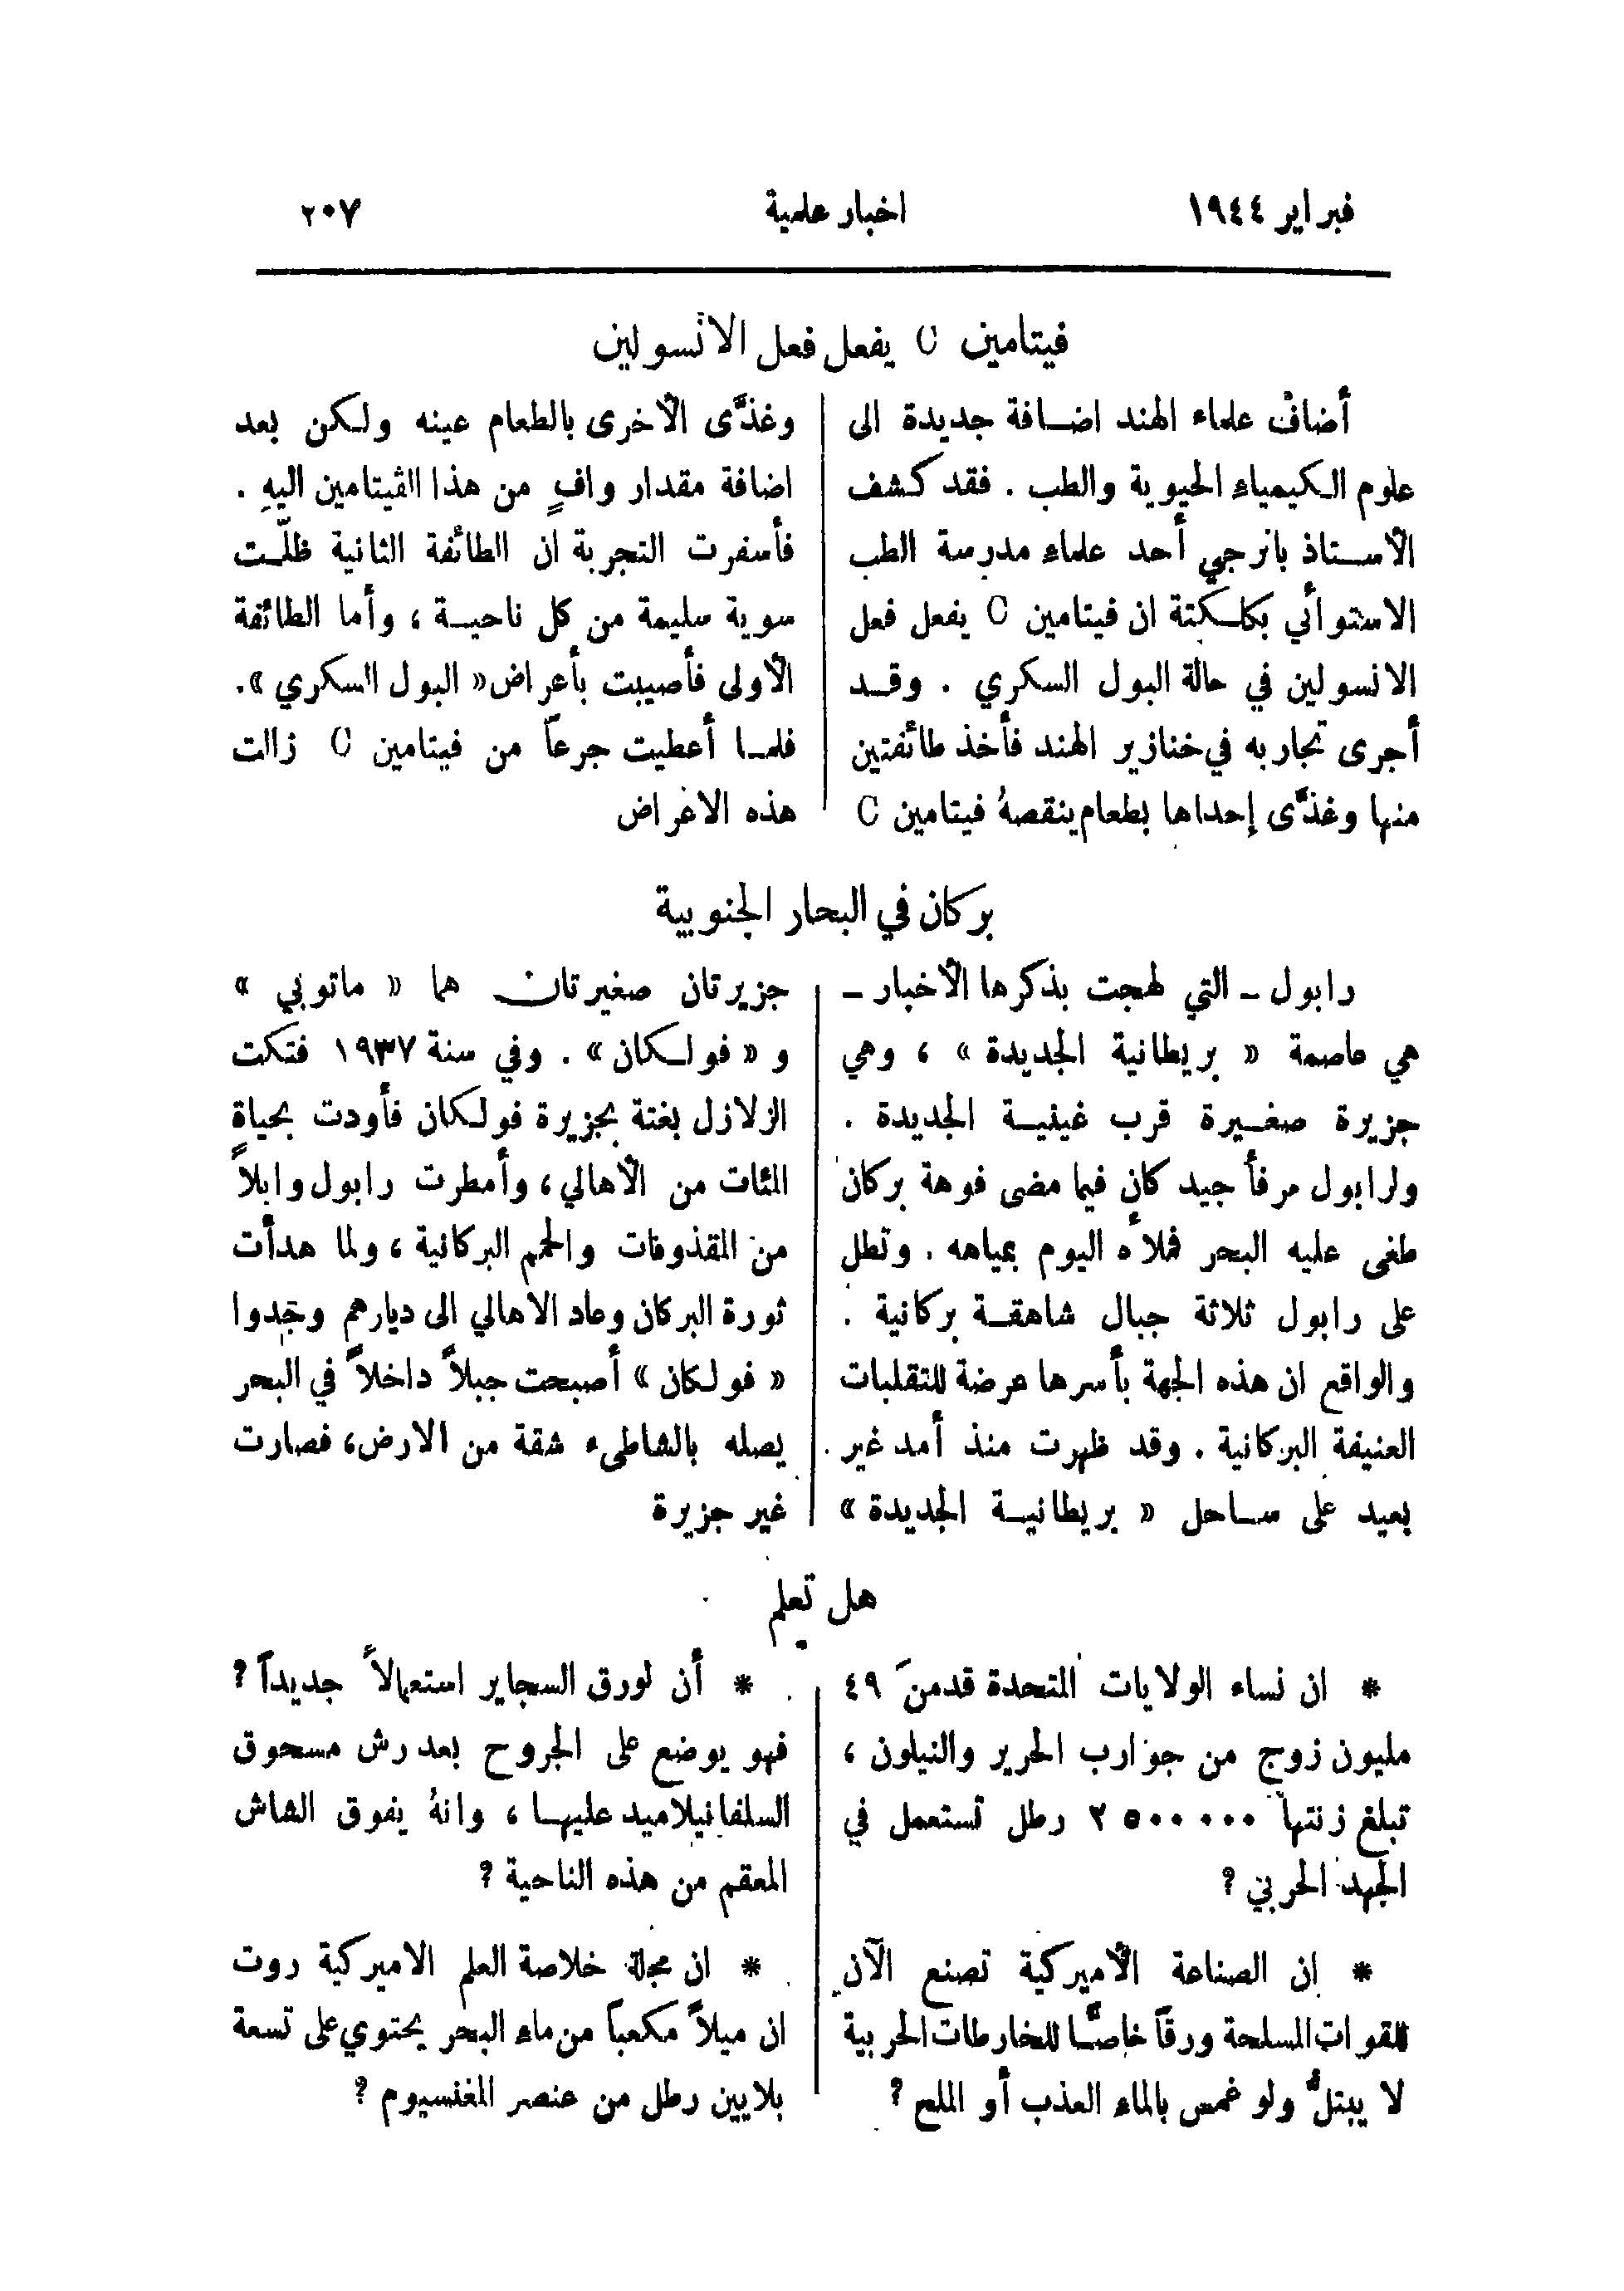 فبراير ١٩٤٤
اخبار علمية
٢٠٧
فيتامين C يفعل فعل الانسولين
أضاف علماء الهند اضافة جديدة الى
علوم الكيمياء الحيوية والطب . فقد كشف
الأستاذ بانرجي أحد علماء مدرسة الطب
الاستوائي بكلكتة ان فيتامين C يفعل فعل
الانسولين في حالة البول السكري . وقد
أجرى تجاربه في خنازير الهند فأخذ طائفتين
منها وغذَّى إحداها بطعام ينقصهُ فيتامين C
وغذَّى الأخرى بالطعام عينه ولكن بعد
اضافة مقدار وافٍ من هذا الڤيتامين اليهِ .
فأسفرت التجربة ان الطائفة الثانية ظلَّت
سوية سليمة من كل ناحية ، وأما الطائفة
الأولى فأصيبت بأعراض « البول السكري ».
فلما أعطيت جرعاً من فيتامين C زالت
هذه الاعراض
بركان في البحار الجنوبية
رابول ــ التي لهجت بذكرها الأخبار ــ
هي عاصمة « بريطانية الجديدة » ، وهي
جزيرة صغيرة قرب غينية الجديدة .
ولرابول مرفأ جيد كان فيما مضى فوهة بركان
طغى عليه البحر فملأه اليوم بمياهه . وتطل
على رابول ثلاثة جبال شاهقة بركانية .
والواقع ان هذه الجهة بأسرها عرضة للتقلبات
العنيفة البركانية . وقد ظهرت منذ أمد غير
بعيد على ساحل « بريطانية الجديدة »
جزيرتان صغيرتان هما « ماتوبي »
و « فولكان » . وفي سنة ١٩٣٧ فتكت
الزلازل بغتة بجزيرة فولكان فأودت بحياةٍ
المئات من الأهالي ، وأمطرت رابول وابلاً
من المقذوفات والحمم البركانية ، ولما هدأت
ثورة البركان وعاد الاهالي الى ديارهم وجدوا
« فولكان » أصبحت جبلاً داخلاً في البحر
يصله بالشاطىء شقة من الارض ، فصارت
غير جزيرة
هل تعلم
* ان نساء الولايات المتحدة قدمنَ ٤٩
مليون زوج من جوارب الحرير والنيلون ،
تبلغ زنتها ٢٥٠٠٠٠٠ رطل تستعمل في
الجهد الحربي ؟
* إن الصناعة الأميركية تصنع الآن
للقوات المسلحة ورقاً خاصًّا للخارطات الحربية
لا يبتلُّ ولو غمس بالماء العذب أو الملح ؟
* أن لورق السجاير استعمالاً جديداً ؟
فهو يوضع على الجروح بعد رش مسحوق
السلفانيلاميد عليها ، وانهُ يفوق الشاش
المعقم من هذه الناحية ؟
* ان مجلة خلاصة العلم الاميركية روت
ان ميلاً مكعباً من ماء البحر يحتوي على تسعة
بلايين رطل من عنصر المغنسيوم ؟